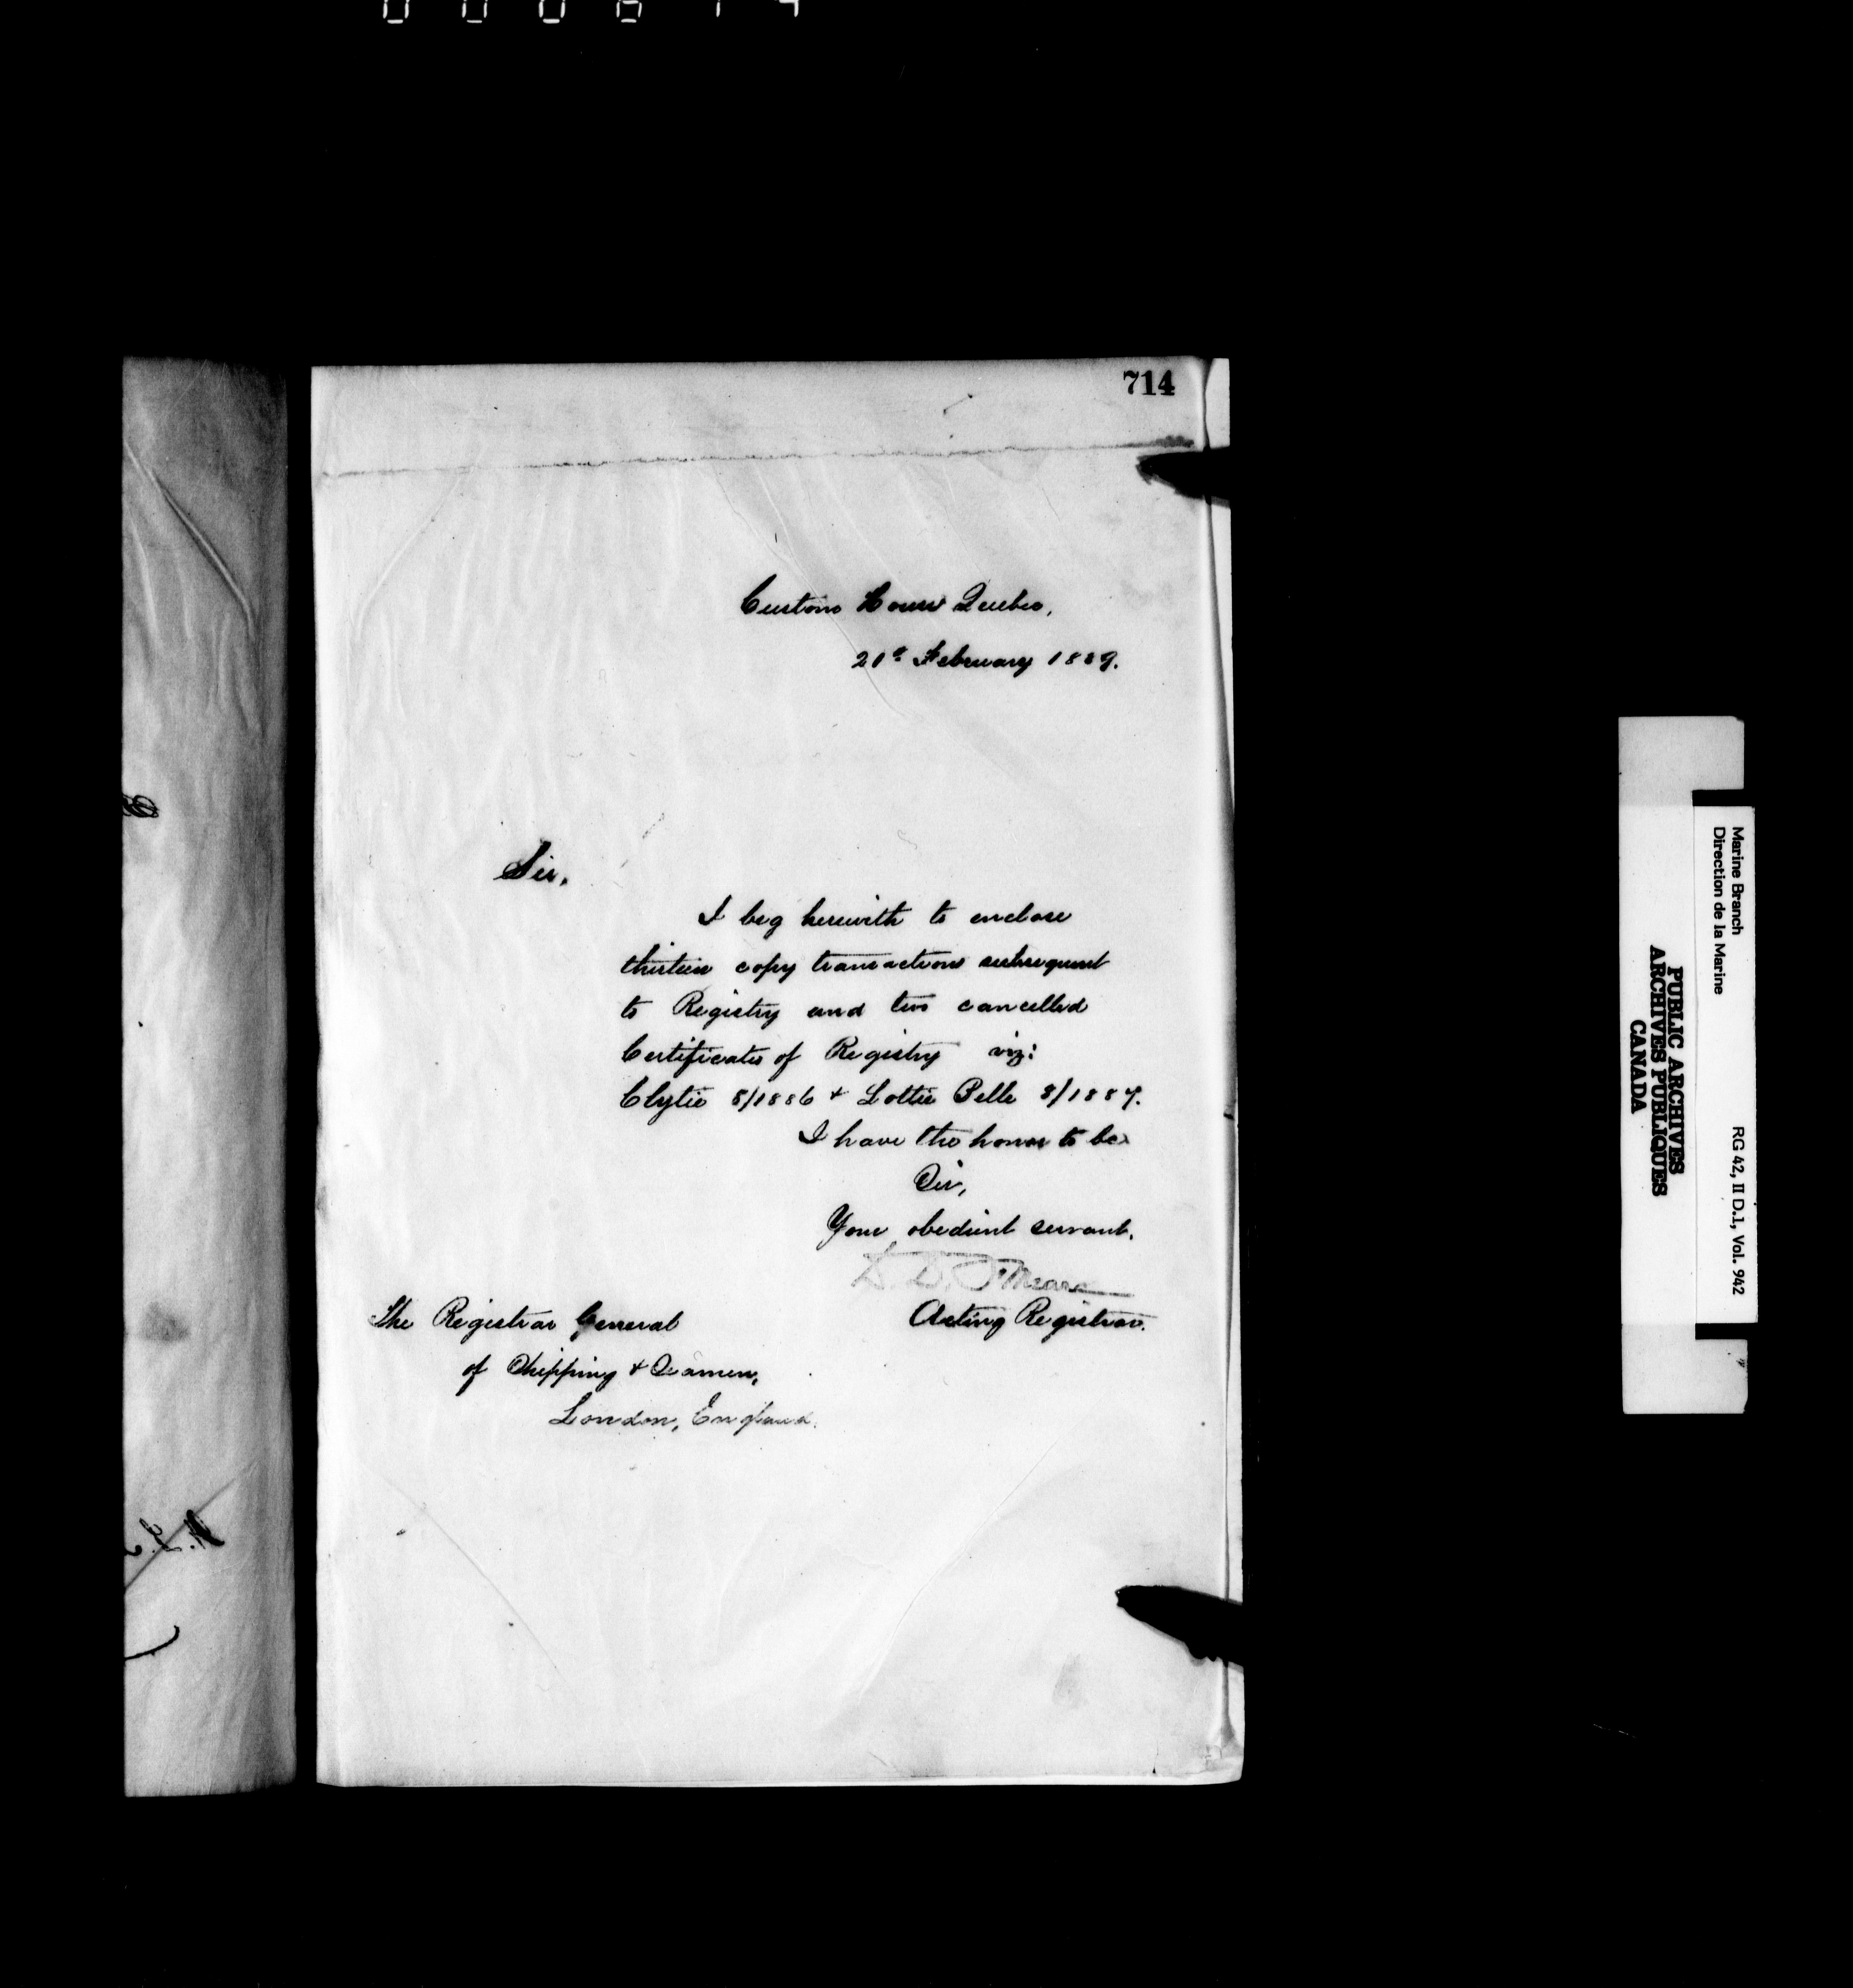 714
Custom House Quebec,
21st February 1889.
Sir,
I beg herewith to enclose
thirteen copy transactions subsequent
to Registry and two cancelled
Certificates of Registry viz:
Clytie 8/1886 + Lottie Belle 8/1887.
I have the honor to be
Sir,
Your obedient servant.
D. D. O'Meara
Acting Registrar.
The Registrar General
of Shipping & Seamen,
London, England.
Marine Branch
Direction de la Marine
RG 42, II D.1, Vol. 942
PUBLIC ARCHIVES
ARCHIVES PUBLIQUES
CANADA